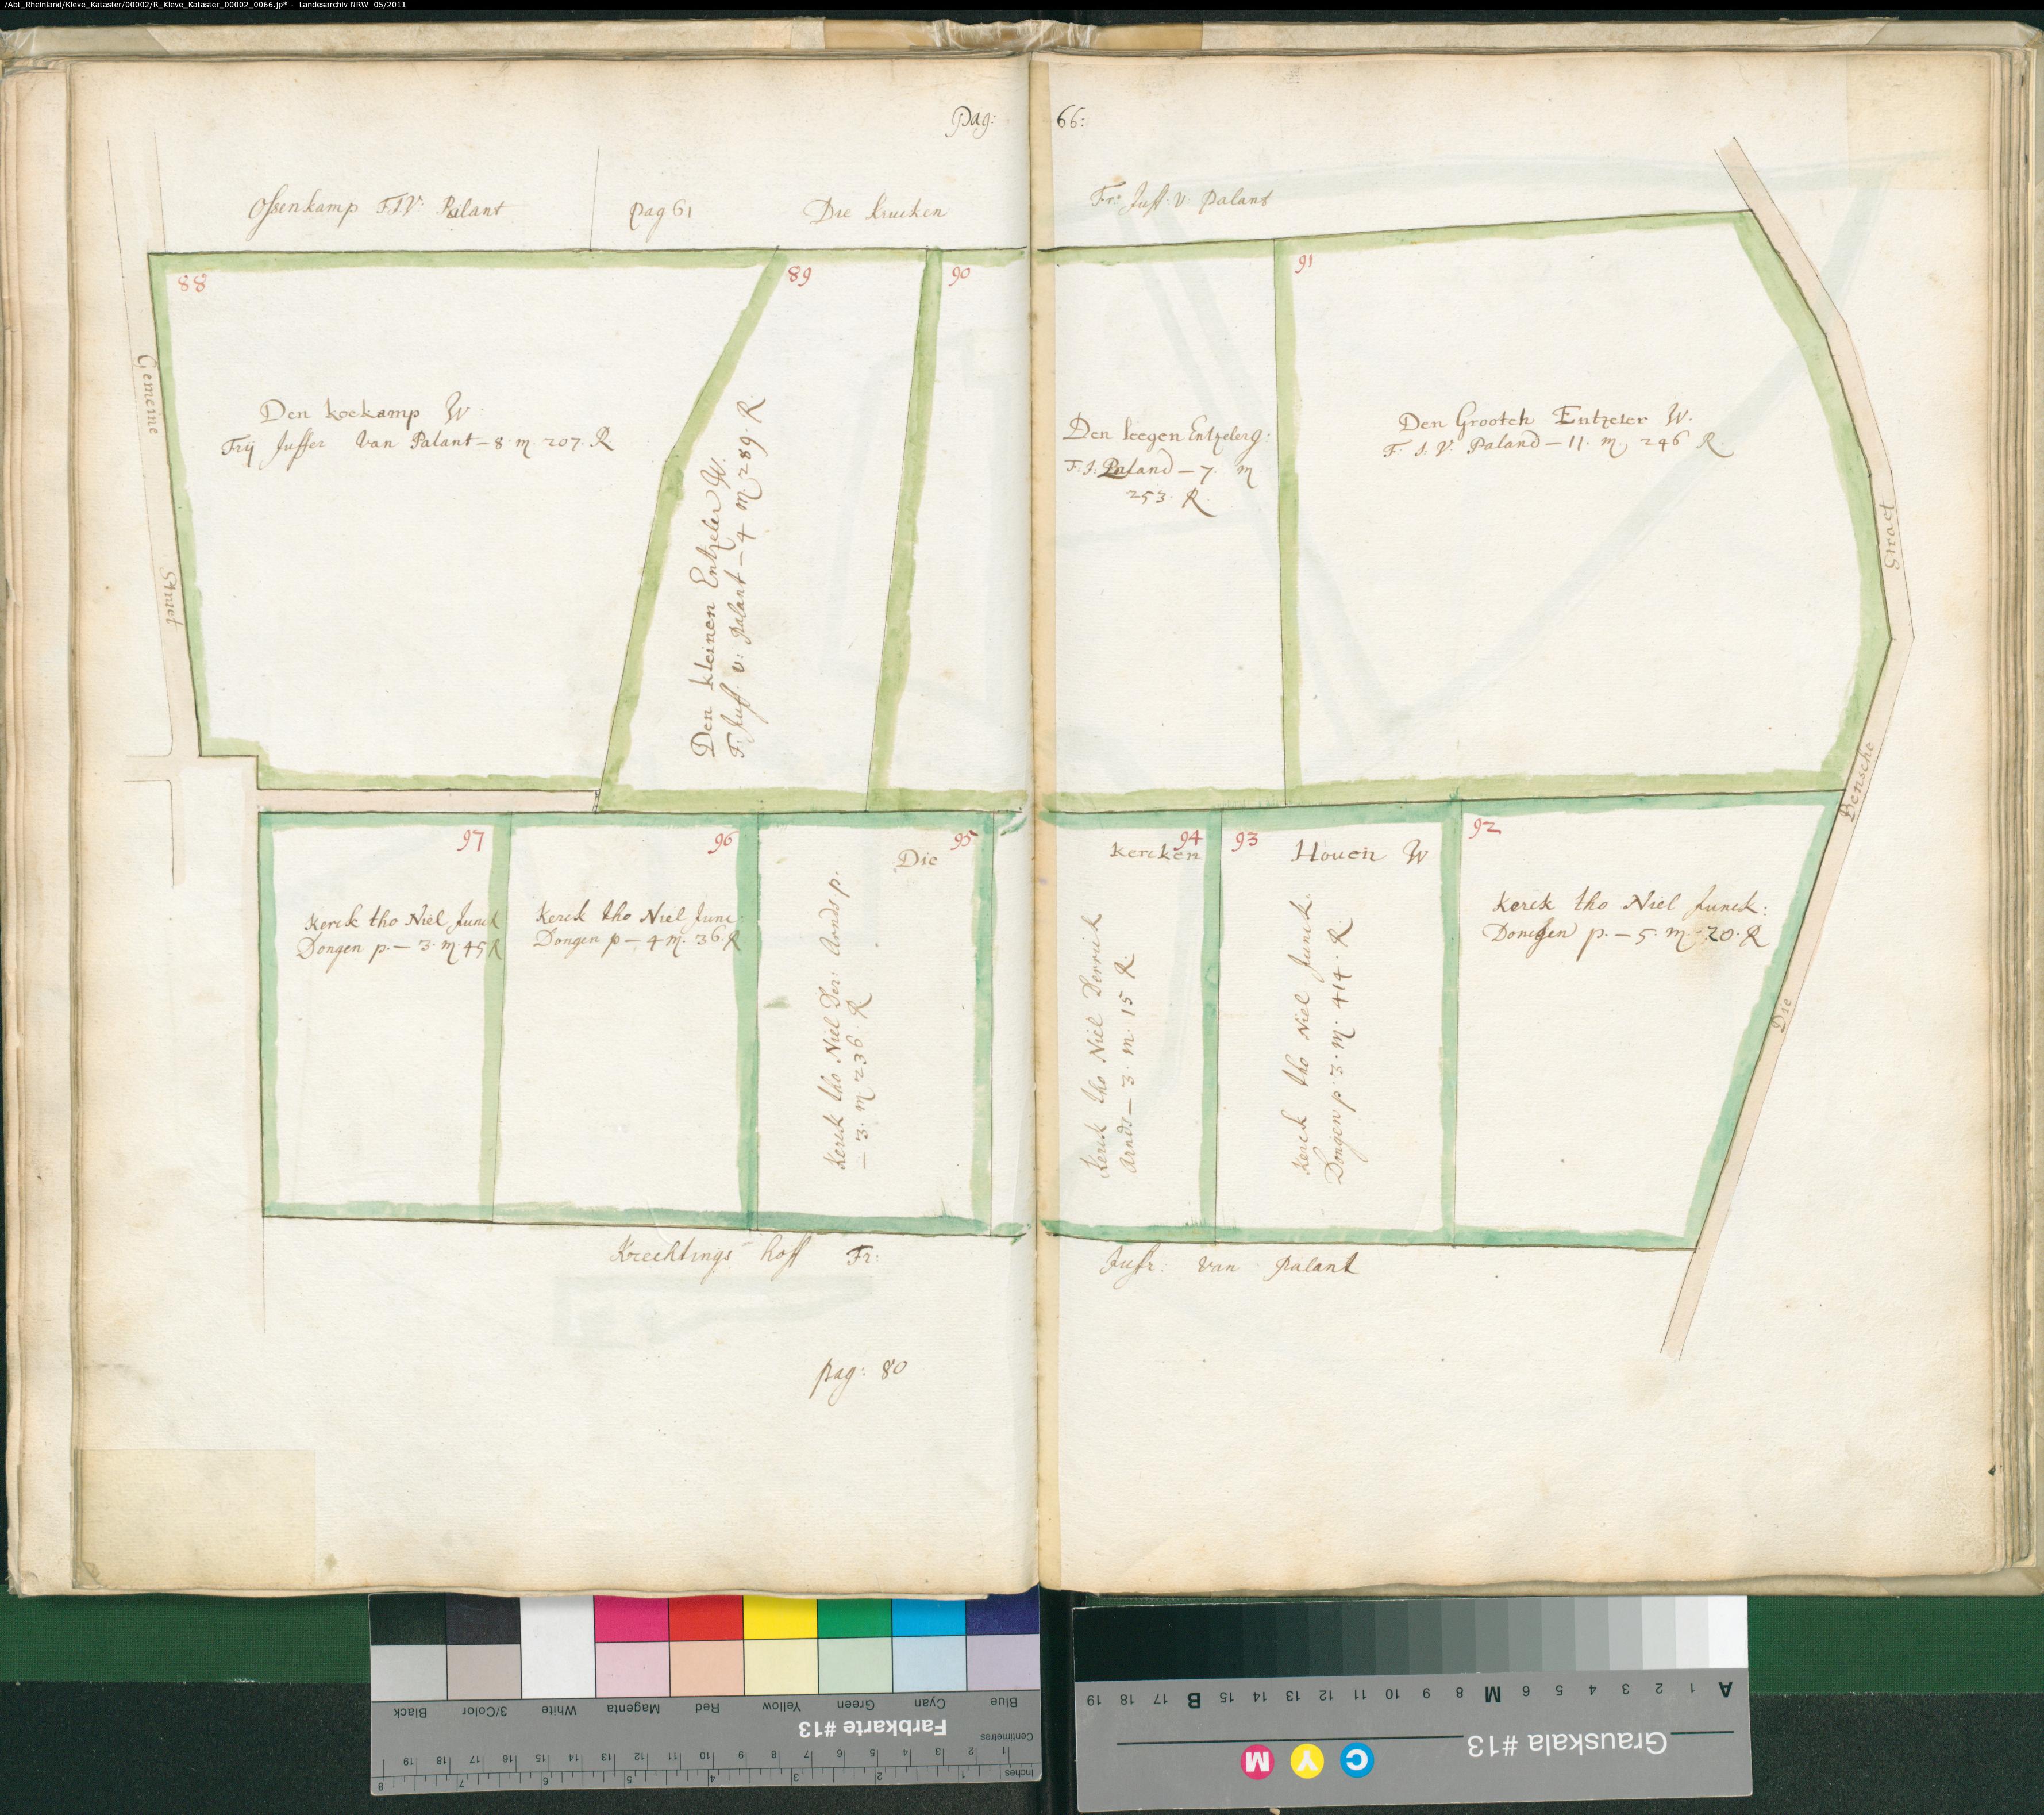 /Abt_Rheinland/Kleve_Kataster/00002/R_Kleve_Kataster_00002_0066.jp* - Landesarchiv NRW 05/2011
Pag: 66:
Ossenkamp F J V. Palant
pag 61
Die krucken
Fr: Juff. v. Palant
88
89
90
91
Gemeine
Straet
Den koekamp W
Frÿ Juffer Van Palant – 8. m. 207. R
Den kleinen Entzeler W.
F. Juff. v: Palant – 4 m. 289. R
Den leegen Entzeler g:
F. J: Paland – 7. m
253. R
Den Grooten Entzeler W.
F. J. V. Paland – 11. m. 246 R
Die Bensche Straet
97
96
95
94
93
92
Die kercken Houen W
Kerck tho Niel Junck
Dongen p. – 3. m. 45 R
Kerck tho Niel Junc.
Dongen p – 4 m. 36. R
Kerck tho Niel Der: Arnds p.
– 3. m. 236 R
Kerck tho Niel Derrick
Arnds – 3. m. 15 R.
Kerck tho Niel Junck.
Dongen p. 3. m. 414. R
Kerck tho Niel Junck:
Dongen p. – 5. m. 20. R
Krechtings hoff Fr: Jufr. van Palant
pag: 80
Blue
Cyan
Green
Yellow
Red
Magenta
White
3/Color
Black
Farbkarte #13
Centimetres
1 2 3 4 5 6 7 8 9 10 11 12 13 14 15 16 17 18 19
Inches
1 2 3 4 5 6 7 8
A 1 2 3 4 5 6 M 8 9 10 11 12 13 14 15 B 17 18 19
Grauskala #13
C Y M